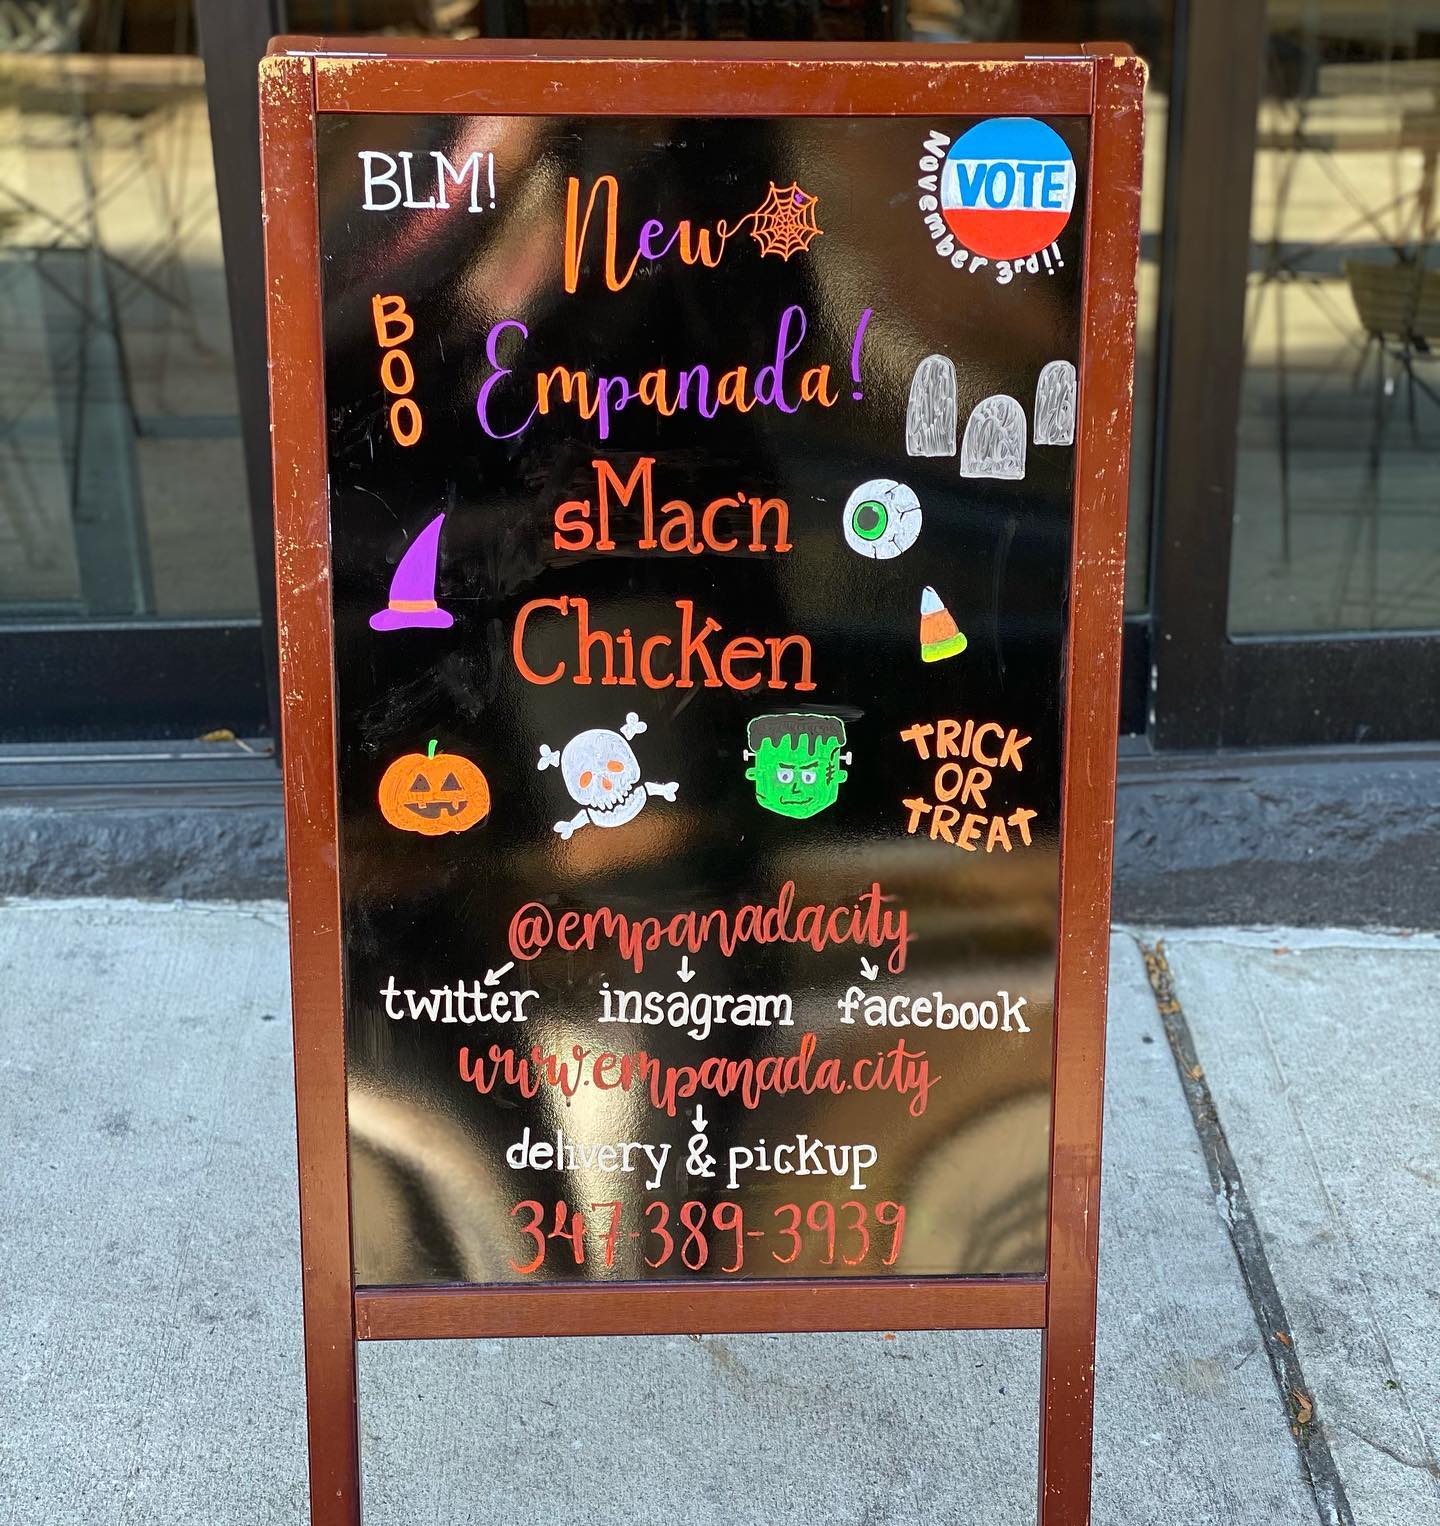 BLM!
VOTE
November 3rd!!
New
BOO
Empanada!
sMac'n
Chicken
TRICK
OR
TREAT
@empanadacity
twitter insagram facebook
www.empanada.city
delivery & pickup
347-389-3939